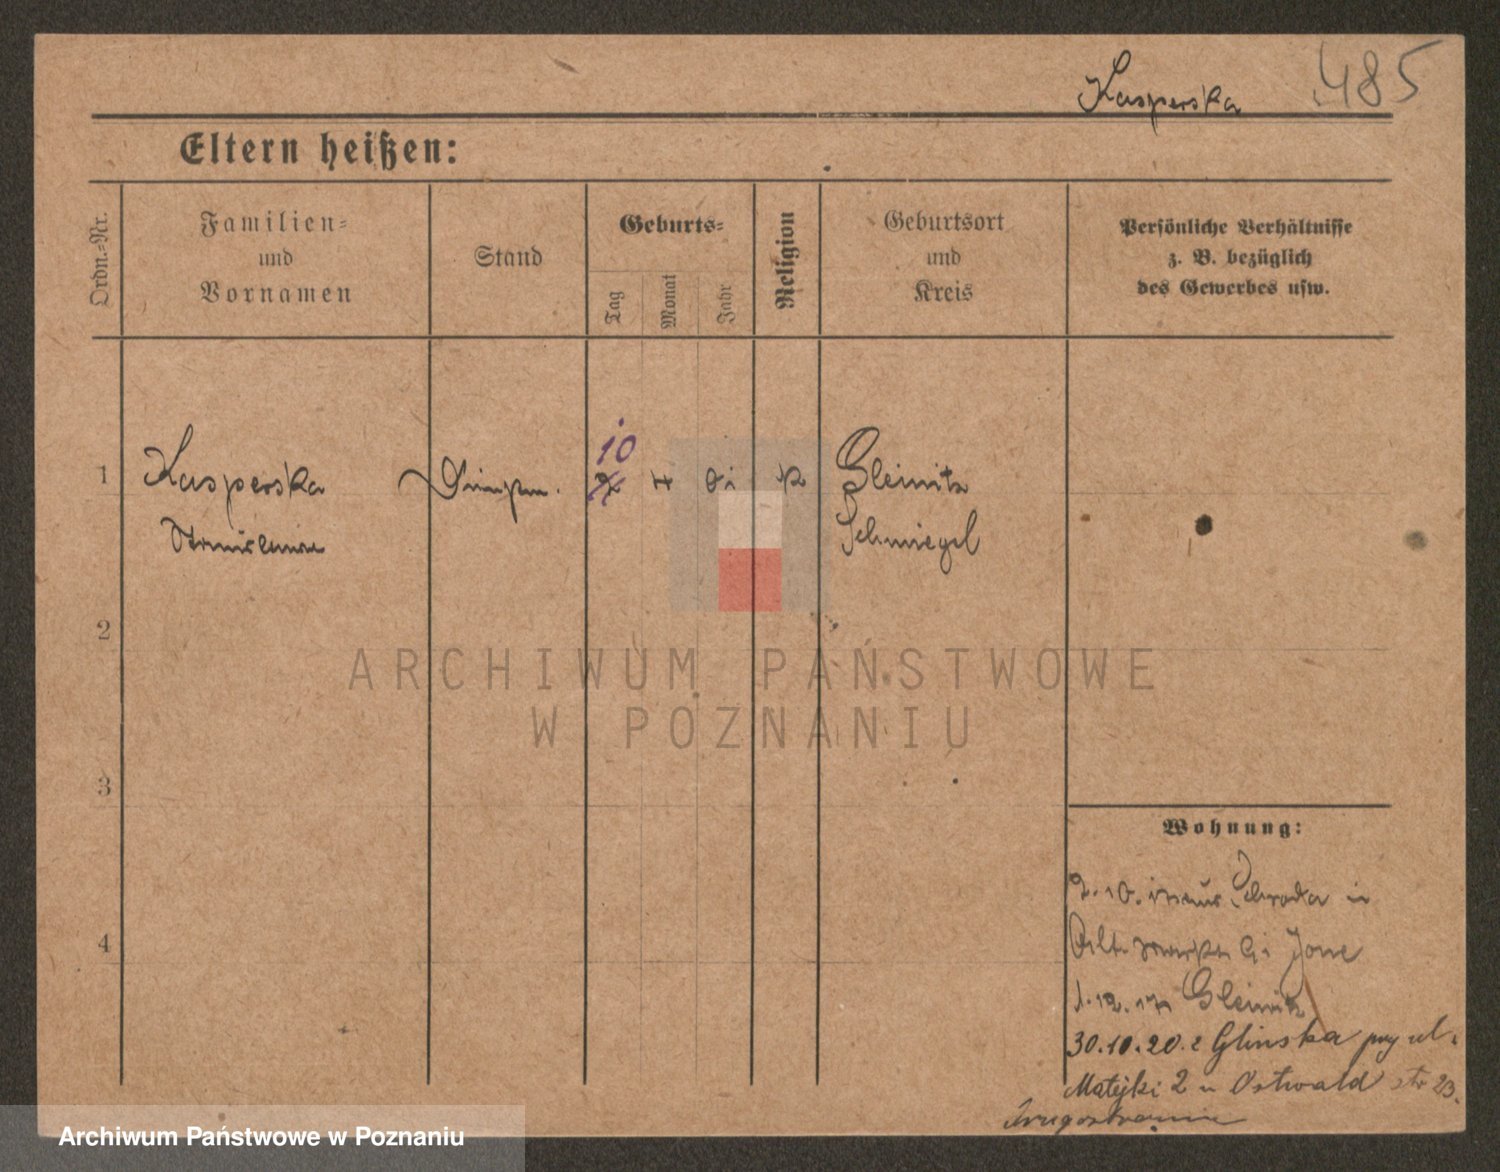 Kasperska 485
Eltern heißen:
Ordn.-Nr.
Familien-
und
Vornamen
Stand
Geburts-
Tag
Monat
Jahr
Religion
Geburtsort
und
Kreis
Persönliche Verhältnisse
z. B. bezüglich
des Gewerbes usw.
10
1 Kasperska 4 Gleinitz
Schmiegel
2
3
4
Wohnung:
Schroda in
1.12.17 Gleinitz
30.10.20 z Glinska przy ul.
Matejki 2 u Ostwald str 23.
ARCHIWUM PAŃSTWOWE
W POZNANIU
Archiwum Państwowe w Poznaniu